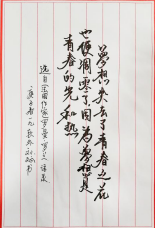 梦想失去了青春之花
也便凋零了因为梦想是
青春的光和热
选自法国作家罗曼罗兰语录
庚子年